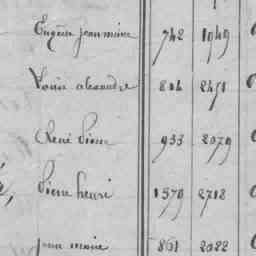 Eugène jeanmaire 742 1949
Louis alexandre 804 2451
René Pierre 933 2079
Pierre henri 1579 2712
jean marie 861 2022